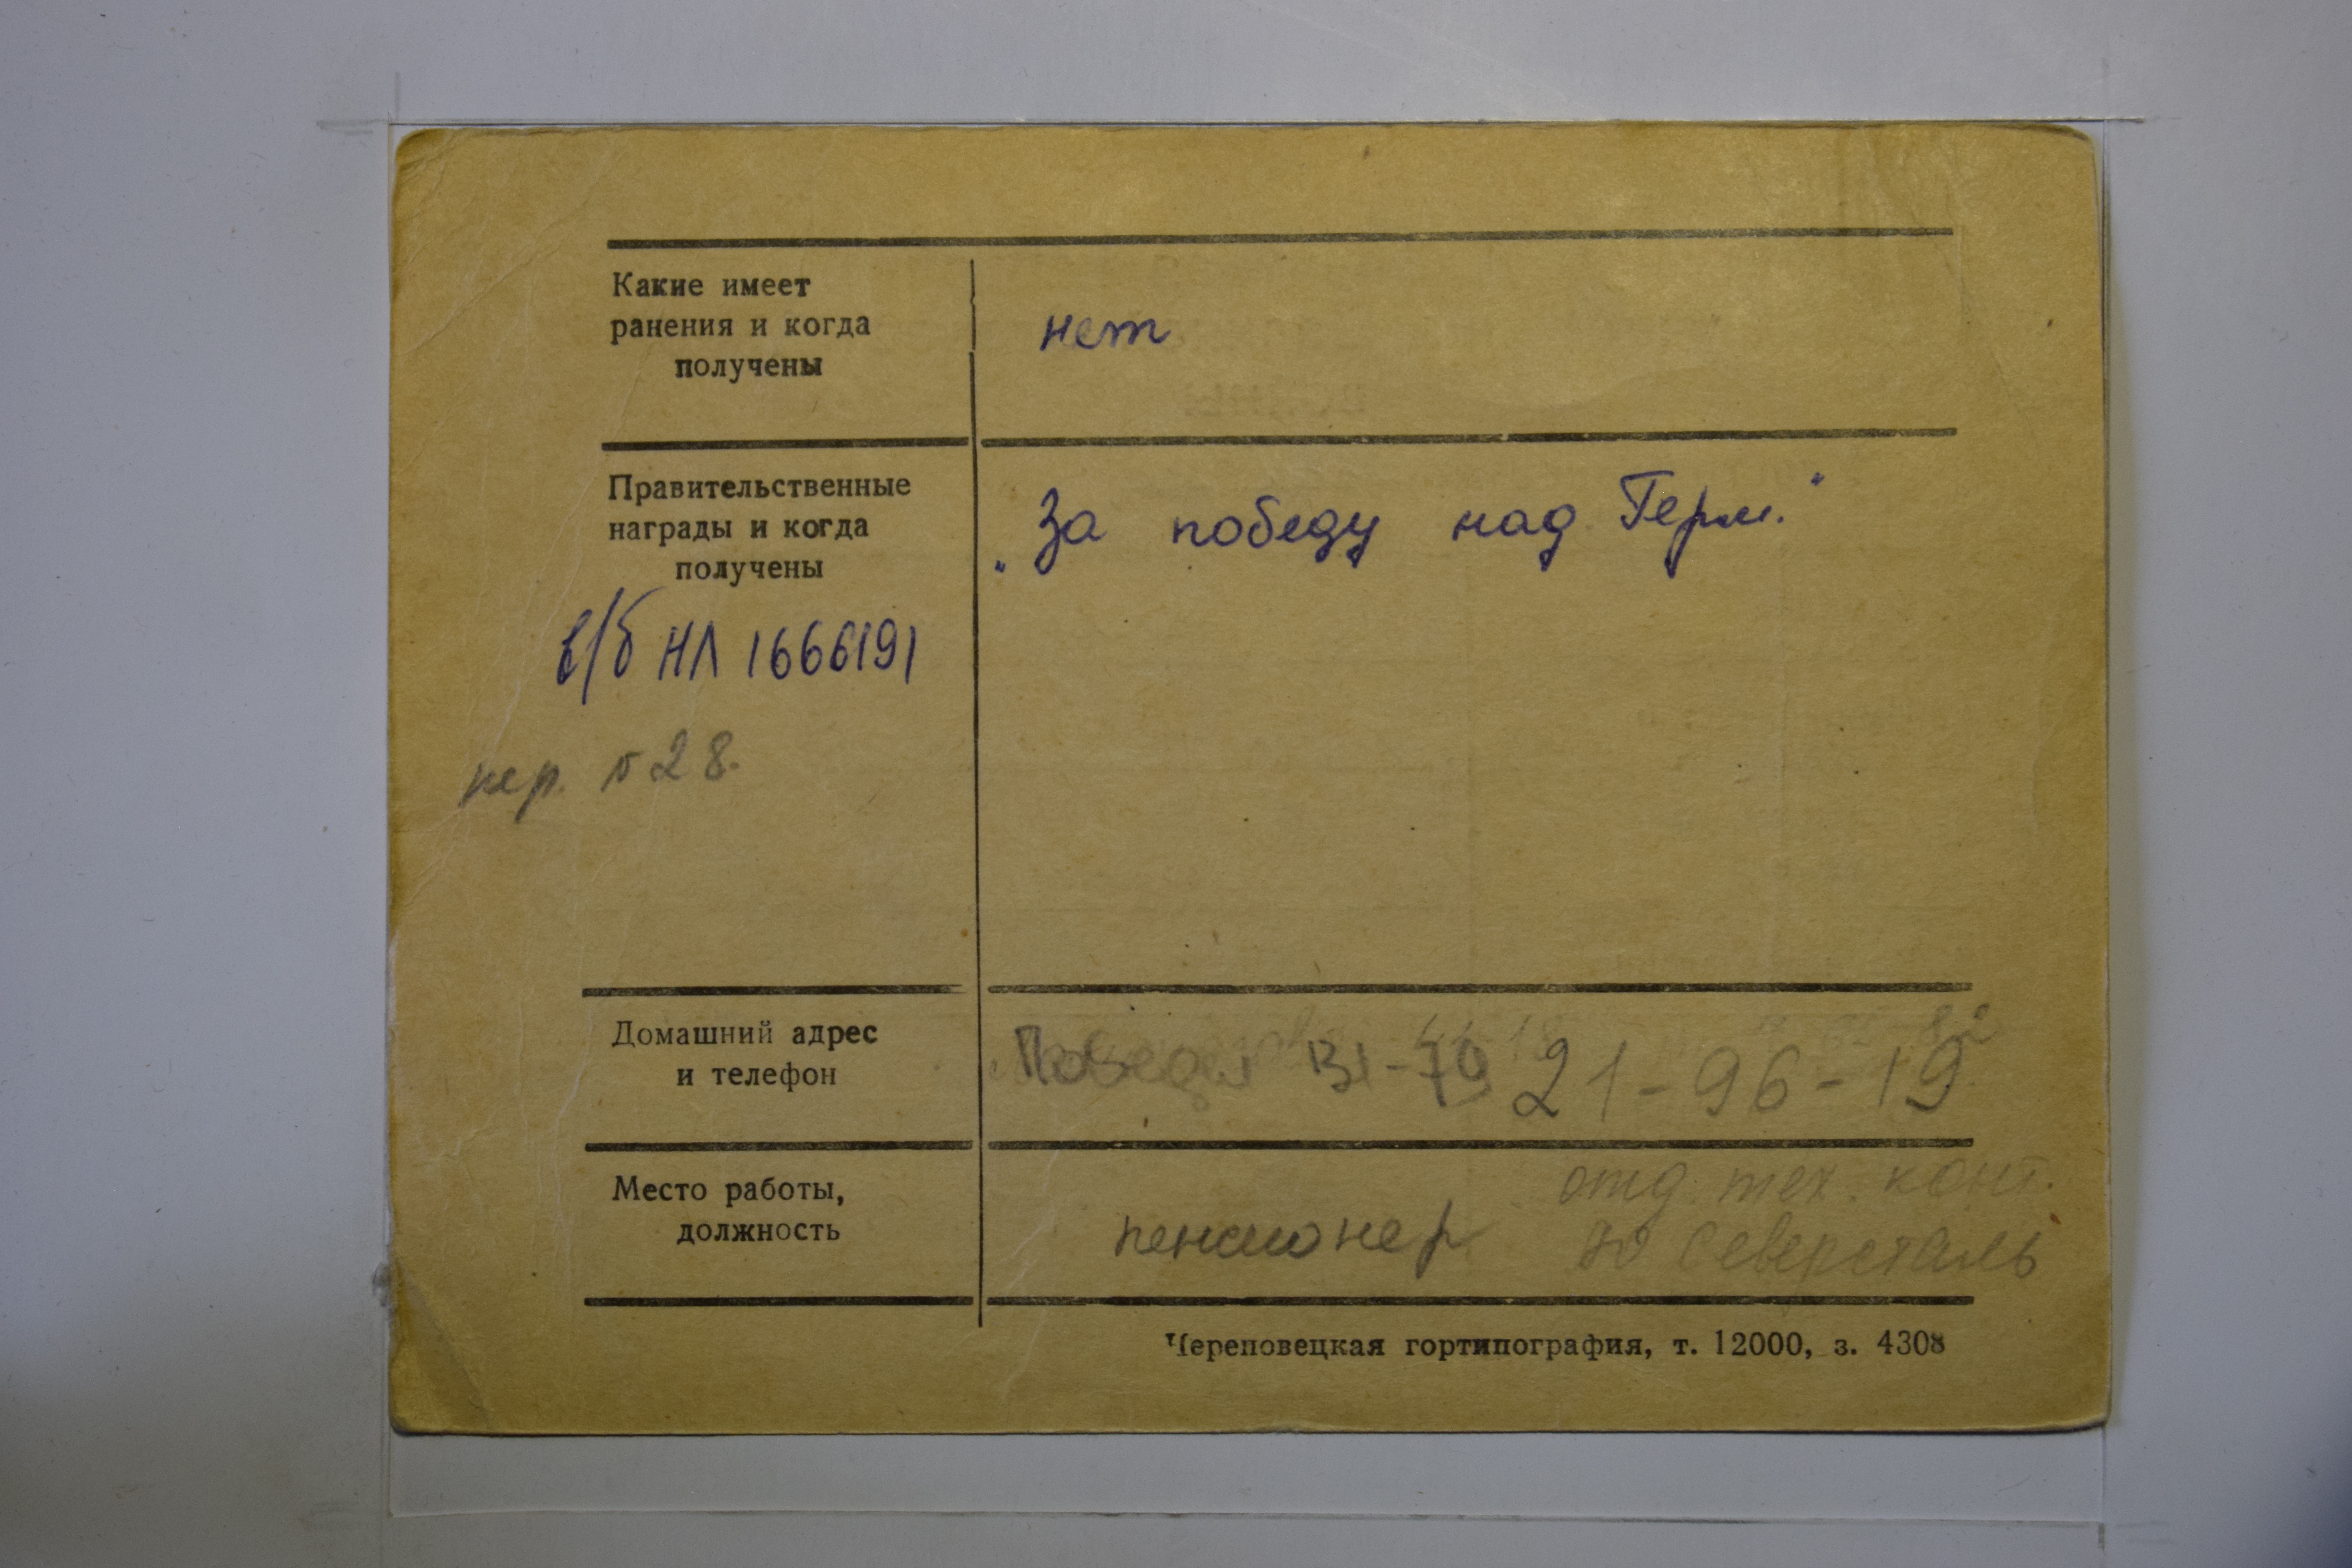 Какие имеет
ранения и когда
получены
нет
Правительственные
награды и когда
получены
„За победу над Герм."
в/б НЛ 1666191
пер. 28.
Домашний адрес
и телефон
Победы 131-79 21-96-19
Место работы,
должность
отд. тех. конт.
пенсионер Северсталь
Череповецкая гортипография, т. 12000, з. 4308